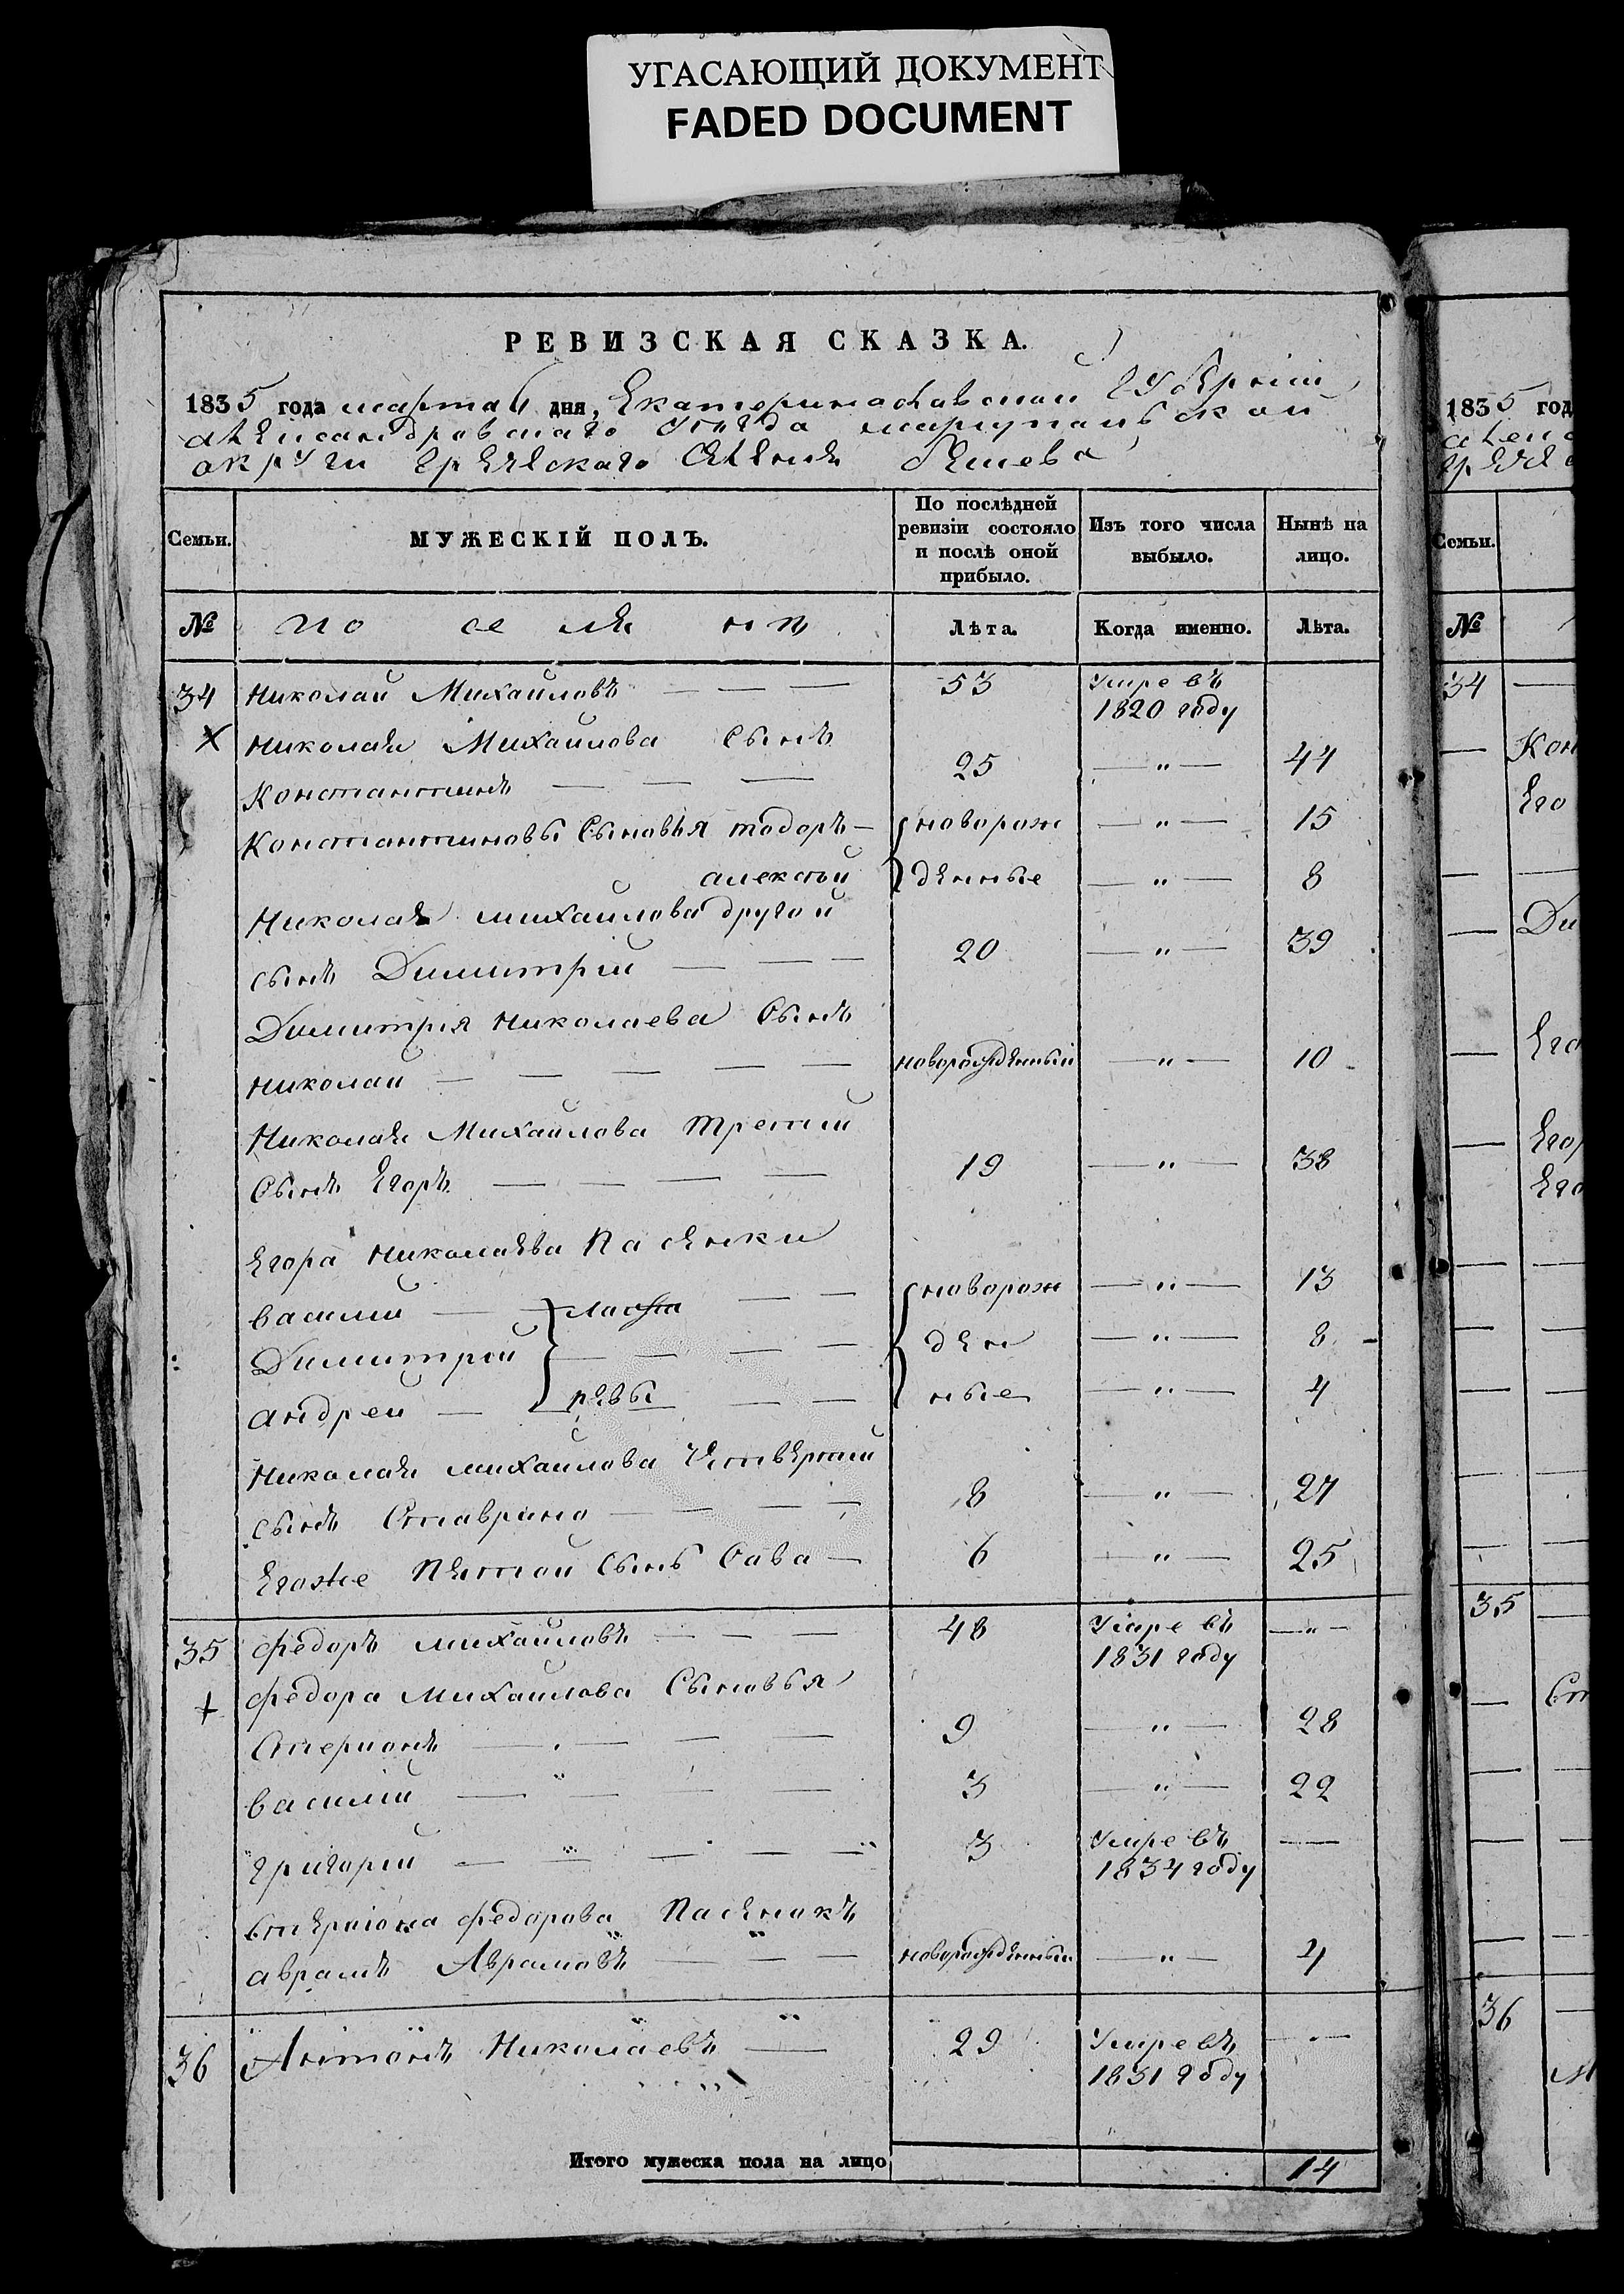 УГАСАЮЩИЙ ДОКУМЕНТ
FADED DOCUMENT
РЕВИЗСКАЯ СКАЗКА.
1835 года марта 6 дня, Екатеринославской Губерніи
александровскаго Уезда мариупольской
округи греческаго Селеня Бешева
Семьи. МУЖЕСКІЙ ПОЛЪ. По послѣдней ревизіи состояло и послѣ оной прибыло. Изъ того числа выбыло. Нынѣ на лицо.
№ поселянъ Лѣта. Когда именно. Лѣта.
34 Николай Михайловъ 53 Умре въ 1820 году
Николая Михайлова Сынъ
Константинъ 25 — " — 44
Константиновы Сыновья тодоръ новорож — " — 15
алексей денные — " — 8
Николая михайлова другой
сынъ Димитрій 20 — " — 39
Димитрія Николаева Сынъ
Николай новорожденный — " — 10
Николая Михайлова Третий
Сынъ Егоръ 19 — " — 38
Егора Николаева Пасенки
василий новорож — " — 13
Димитрей ден — " — 8
андрей ревы ные — " — 4
Николая михайлова Четвертий
сынъ Ставрино 8 — " — 27
Егоже Пятой Сынъ Сава 6 — " — 25
35 Федоръ михайловъ 48 Умре въ — " —
1831 году
Федора Михайлова Сыновья
Стерионъ 9 — " — 28
василій 3 — " — 22
григорий 3 Умре въ —
1834 году
Стериона Федорова Пасенокъ
аврамъ Аврамовъ новорожденный — " — 4
36 Антонъ Николаевъ 29 Умре въ —
1831 году
Итого мужеска пола на лицо 14
1835 год
Семьи.
№
34
Кон
Его
Ди
Его
Егор
Его
35
Ст
36